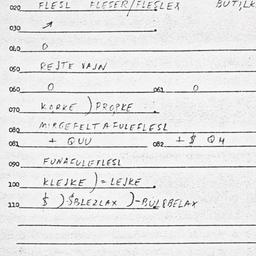 020 FLESL FLESER/FLESLEX BUTILK
030
040 O
050 REJTE VAJN
060 O 061 O
070 KORKE ) PROPKE
080 MIRGEFELTAFULEFLESL
081 + QUU 082 + $ QU
090 FUNAFULEFLESL
100 KLEJKE ) = LEJKE
110 $ ) $BLEZLAX ) - BULBBELAX